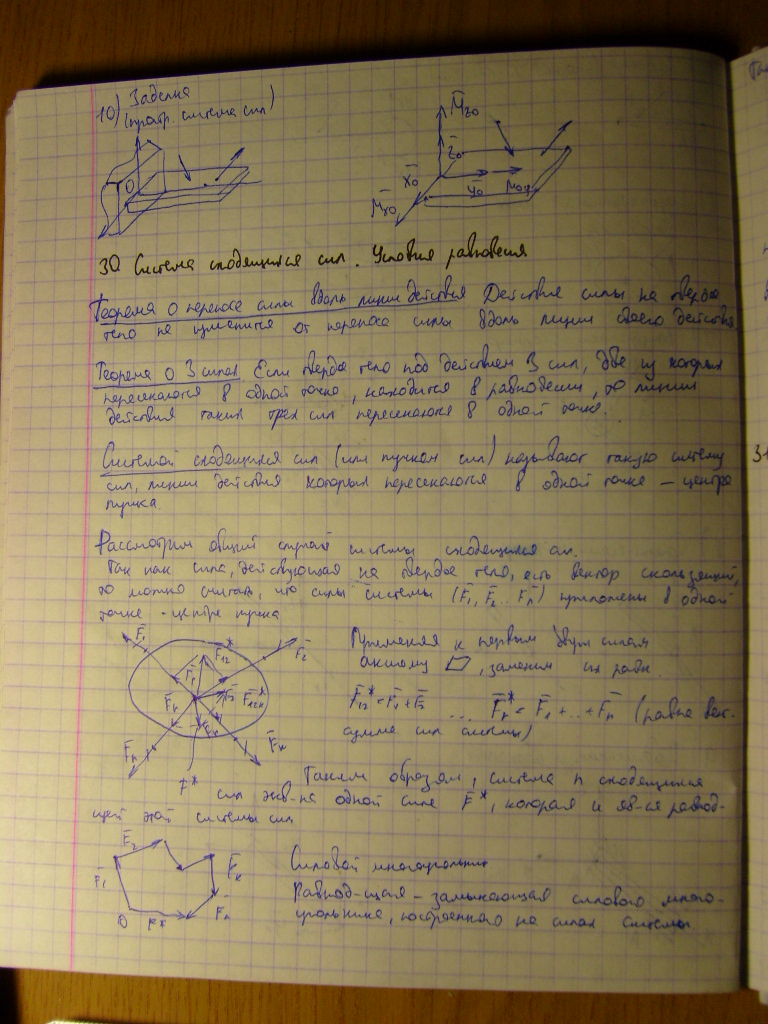 10) Заделка
(простр. система сил)
O
M̄zo
Z̄o
X̄o
Ȳo
M̄oy
M̄xo
30 Система сходящихся сил. Условия равновесия
Теорема о переносе силы вдоль линии действия Действие силы на твердое
тело не изменится от переноса силы вдоль линии своего действия
Теорема о 3 силах Если твердое тело под действием 3 сил, две из которых
пересекаются в одной точке, находится в равновесии, то линии
действия таких трех сил пересекаются в одной точке.
Системой сходящихся сил (или пучком сил) называют такую систему
сил, линии действия которых пересекаются в одной точке — центре
пучка.
Рассмотрим общий случай системы сходящихся сил.
Так как сила, действующая на твердое тело, есть вектор скользящий,
то можно считать, что силы системы (F̄1, F̄2 .. F̄n) приложены в одной
точке - центре пучка
F̄1
F̄12*
F̄2
Применяя к первым двум силам
аксиому ▱, заменим их равн.
F̄12* = F̄1 + F̄2 ... F̄n* = F̄1 + .. + F̄n (равна век.
сумме сил системы)
F̄1
F̄2
F̄12k*
F̄k
F̄n
F̄k
F̄*
Таким образом, система n сходящихся
сил экв-на одной силе F̄*, которая и яв-ся равнод-
щей этой системы сил
F̄2
F̄1
F̄k
F̄n
O
F*
Силовой многоугольник
Равнод-щая - замыкающая силового много-
угольника, построенного на силах системы.